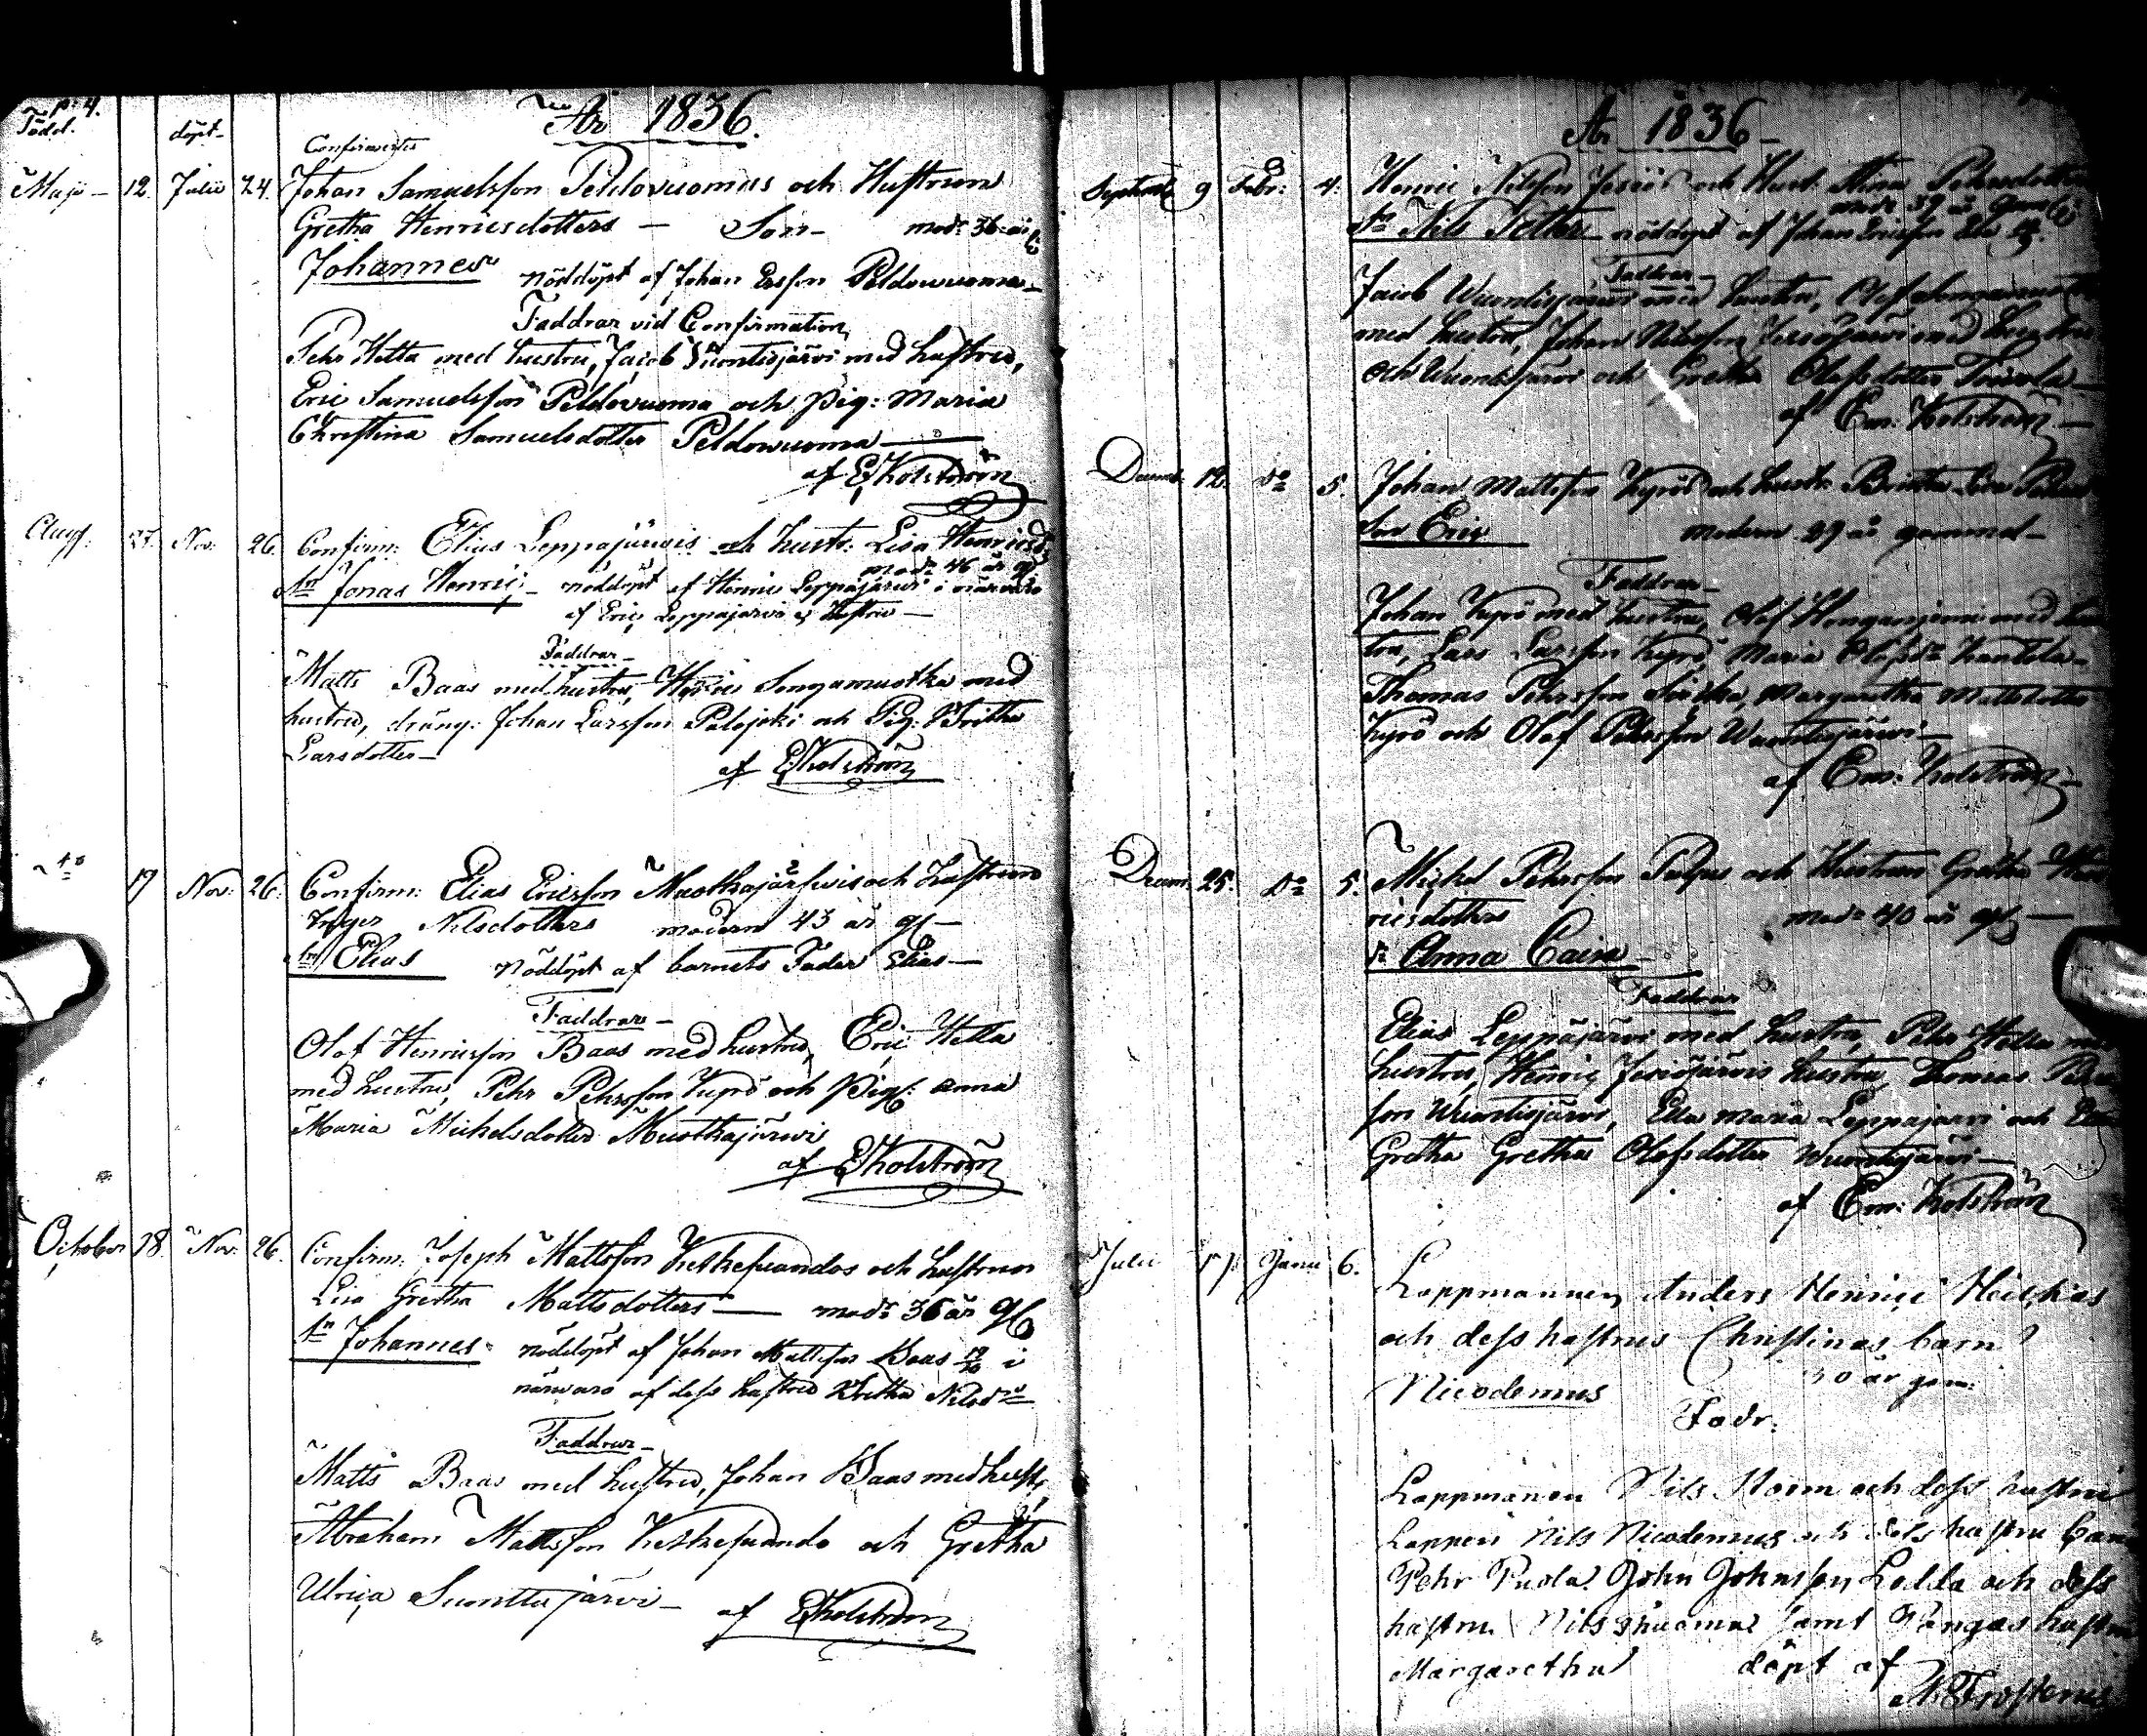 p: 4.
År 1836.
Född. döpt-
Confirmertes
Maji - 12. Julii 24. Johan Samuelsson Peldovuomas och Hustrun
Gretha Henricsdotters - Son - modr 36 år
Johannes nöddöpt af Johan Ersson Peldowuoma -
Faddrar vid Confirmation
Pehr Hetta med hustru, Jacob Vuontisjärvi med hustru,
Eric Samuelsson Peldovuoma och pig: Maria
Christina Samuelsdotter Peldowuoma
af E Kolström
Aug: 27. Nov: 26. Confirm: Elias Leppäjärvis och hustr: Lisa Henricsd
modr 46 år gl
Son Jonas Henric - nöddöpt af Henric Leppäjärvi i närvaro
af Eric Leppäjärvi o Hustru -
Faddrar -
Matts Baas med hustru, Henric Songamuotka med
hustru, dräng: Johan Larsson Palojoki och Pig: Britha
Larsdotter -
af E Kolström
do 17 Nov: 26. Confirm: Elias Ericsson Muothajärfwis och hustrun
Inger Nilsdotters modern 43 år gl -
Son Elias nöddöpt af barnets Fader Elias -
Faddrar -
Olof Henricsson Baas med hustru, Eric Hetta
med hustru, Pehr Pehrsson Kyrö och Pig: Anna
Maria Michelsdotter Muothajärwi
af E Kolström
October 18. Nov: 26. Confirm: Joseph Mattsson Ketkesuandos och hustrun
Lisa Gretha Mattsdotters - modr 36 år gl
Sn Johannes nöddöpt af Johan Mattsson Baas 19/10 i
närwaro af dess hustru Britha Nilsdr
Faddrar -
Matts Baas med hustru, Johan Baas med hust,
Abraham Mattsson Ketkesuando och Gretha
Ulrica Suonttajärvi - af E Kolström
År 1836 -
Septemb 9 Febr: 4. Henric Nilsson Jesiös och Hust: Stina Pehrsdotters
modr 39 år gamel
Sn Nils Petter nöddöpt af Johan Ericsson
Faddrar -
Jacob Wuontisjärwi med hustru, Olof
med hustru, Johan Nilsson Jesiöjärwi med hustru
och Wuontisjärwi och Gretha Olofsdotter
af Em: Kolström -
Decemb. 12. do 5. Johan Mattsson Kyrös och hustr Britha
Son Eric modern 29 år gammal -
Faddrar -
Johan Kyrö med hustru, Olof med hus
tru, Lars Larsson Kyrö, Maria Olofsdr
Thomas Pehrsson Margaretha Mattsdotter
Kyrö och Olof Pehrsson Wuontisjärwi -
af Em: Kolström -
Decem. 25. do 5. Michel Pehrsson och Hustrun Gretha Hen
ricsdotters modr 40 år gl -
dr Anna Caisa -
Faddrar
Elias Leppäjärwi med hustru, Pehr Hetta med
hustru, Henric Jesiöjärvis hustru, Thomas Pehrs
son Wuontisjärwi, Ella Maria Leppäjärvi och
Gretha Gretha Olofsdotter Wuontisjärwi -
af Em: Kolström
Julii 17 Janu 6. Lappmannen Anders Henric
och dess hustrus Christinas barn
Nicodemus 30 år gam:
Fadr.
Lappmannen Nils och dess hustru
Lappen Nils Nicodemus och dess hustru
Pehr John Johnsson och dess
hustru Nils samt hustru
Margaretha döpt af